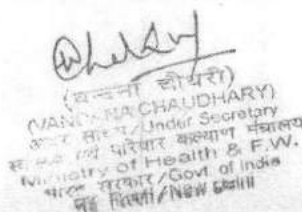 (वन्दना चौधरी)
(VANDANA CHAUDHARY)
अवर सचिव/Under Secretary
एवं परिवार कल्याण मंत्रालय
Ministry of Health & F.W.
भारत सरकार/Govt. of India
नई दिल्ली/New Delhi